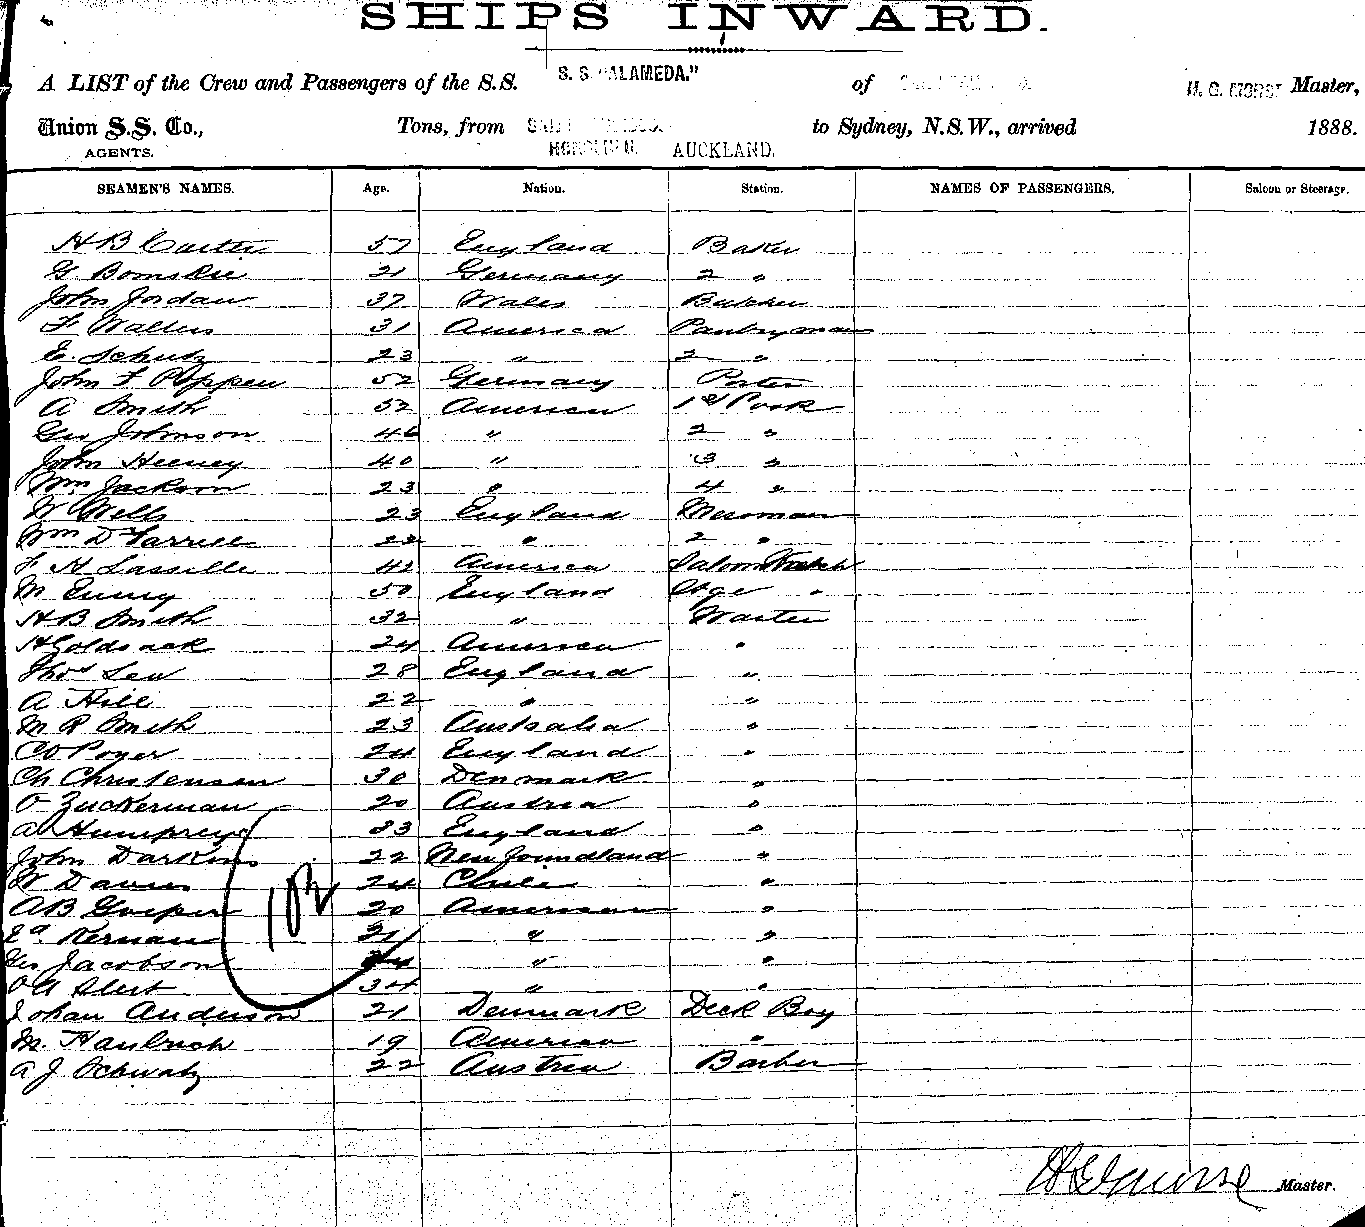 SHIPS INWARD.
A LIST of the Crew and Passengers of the S.S. S. S. "ALAMEDA." of H. G. MORSE Master,
Union S.S. Co., Tons, from to Sydney, N.S.W., arrived 1888.
AGENTS. HONOLULU. AUCKLAND.
SEAMEN'S NAMES. Age. Nation. Station. NAMES OF PASSENGERS. Saloon or Steerage.
H B Carter 57 England Baker
G. Bomskie 21 Germany 2 "
John Jordan 37 Wales Butcher
F Walters 31 America Pantryman
E. Schutz 23 " 2 "
John F Poppen 52 Germany Porter
A Smith 52 America 1st Cook
Geo Johnson 46 " 2 "
John Heeney 40 " 3 "
Wm Jackson 23 " 4 "
W Wells 23 England Messman
Wm D Farrell 22 " 2 "
F H Lassille 42 America Saloon Watch
M Enny 50 England Stge "
H B Smith 32 " Waiter
H Goldsack 24 America "
Thos Lea 28 England "
A Hill 22 " "
M R Smith 23 Australia "
Poyer 24 England "
Ch Christensen 30 Denmark "
O Zuckerman 20 Austria "
A Humphreys 33 England "
John Darkins 22 Newfoundland "
W Davis 24 Chile "
A B 20 American "
Ed. Kernan 21 " "
Geo Jacobson 24 " "
34 " "
Johan Anderson 21 Denmark Deck Boy
M. Haubrich 19 America "
A J Schwatz 22 Austria Barber
102
H G Morse Master.